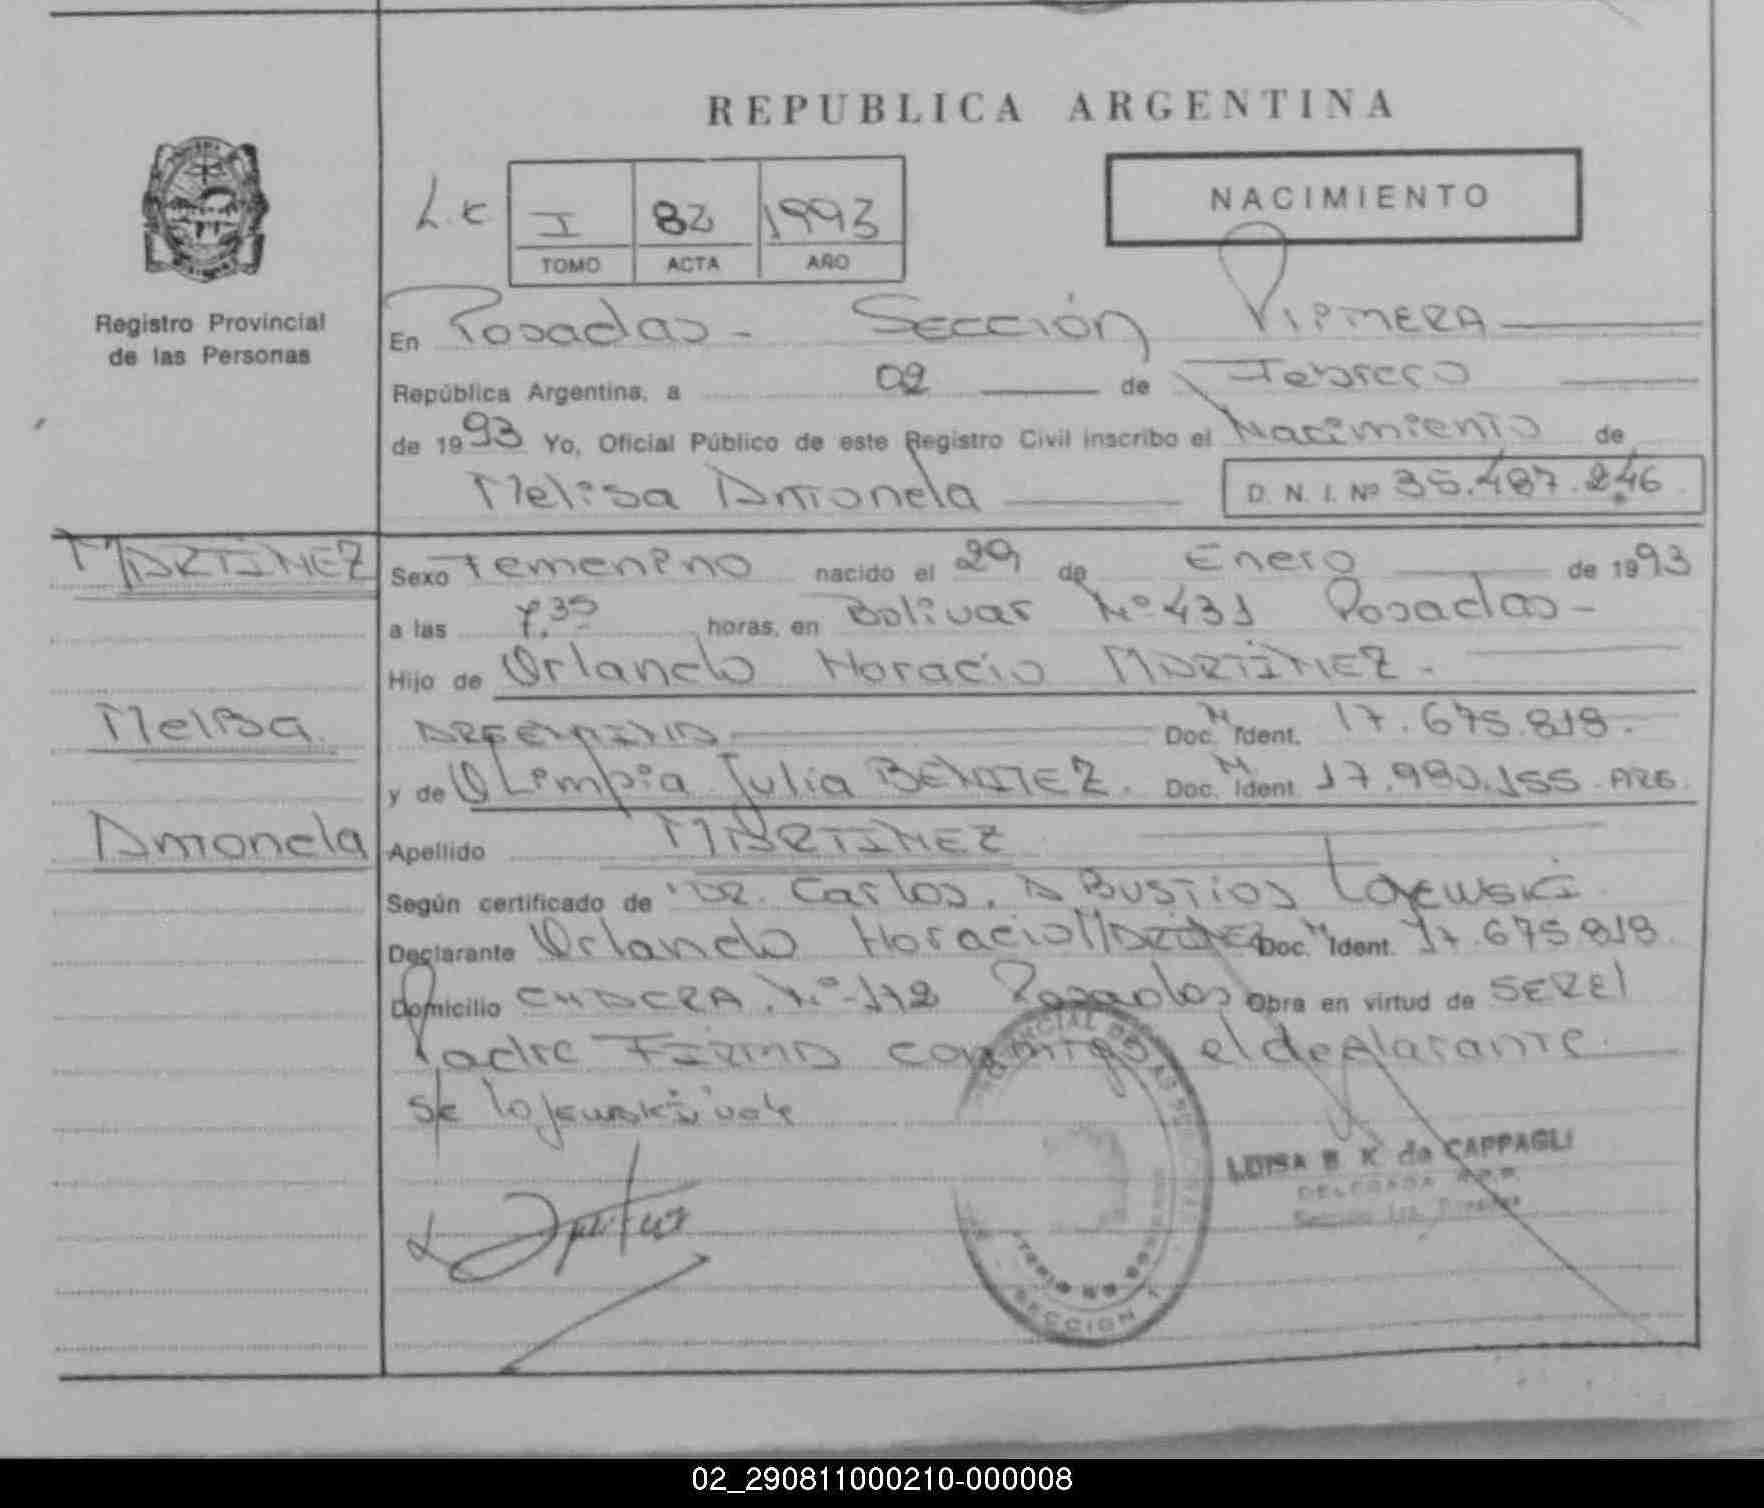 REPUBLICA ARGENTINA
L.C I 82 1993
TOMO ACTA AÑO
NACIMIENTO
Registro Provincial
de las Personas
En Posadas - Sección Pirmera
República Argentina, a 02 de Febrero
de 1993 Yo, Oficial Público de este Registro Civil inscribo el Nacimiento de
Melisa Antonela
D. N. I. Nº 35.487.246
MARTINEZ
Sexo Femenino nacido el 29 de Enero de 1993
a las 7,35 horas, en Bolivar Nº 431 Posadas -
Hijo de Orlando Horacio MARTINEZ.
Melisa
ARGENTINA Doc. M Ident. 17.675.818.
y de Olimpia Julia BENITEZ. Doc. M Ident. 17.980.155 - ARG.
Antonela
Apellido MARTINEZ
Según certificado de DR. Carlos. A Bustios Lojewski
Declarante Orlando Horacio MARTINEZ Doc. M Ident. 17.675.818.
Domicilio Nº 112 Posadas Obra en virtud de SER el
Padre FIRMA conmigo el declarante
Lojewski vale
LUISA B K de CAPPAGLI
DELEGADA
SECCION 1
02_290811000210-000008